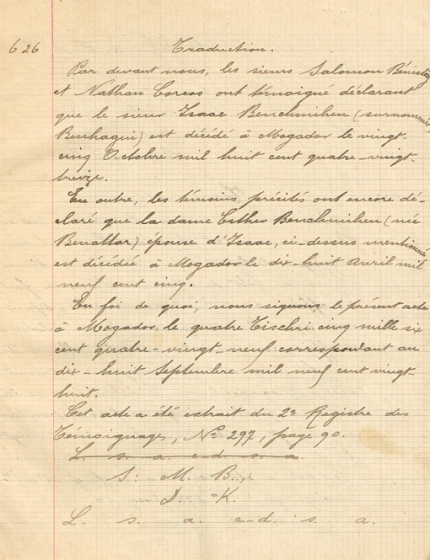 626
Traduction.
Par devant nous, les sieurs Salomon
et Nathan Corcos ont témoigné déclarant
que le sieur Isaac Benchmihen (surnommé
Benhaqui) est décédé à Mogador le vingt-
cinq Octobre mil huit cent quatre-vingt-
treize.
En outre, les témoins précités ont encore dé-
claré que la dame Esther Benchmihen (née
Benattar) épouse d'Isaac, ci-dessus mentionné
est décédée à Mogador le dix-huit Avril mil
neuf cent cinq.
En foi de quoi, nous signons le présent acte
à Mogador le quatre Tischri cinq mille six
cent quatre-vingt-neuf correspondant au
dix-huit Septembre mil neuf cent vingt-
huit.
Cet acte a été extrait du 2e Registre des
Témoignages, No 297, page 90.
L. s. a. e-d. s. a.
S. M. B.,
J. K.
L. s. a. e-d. s. a.